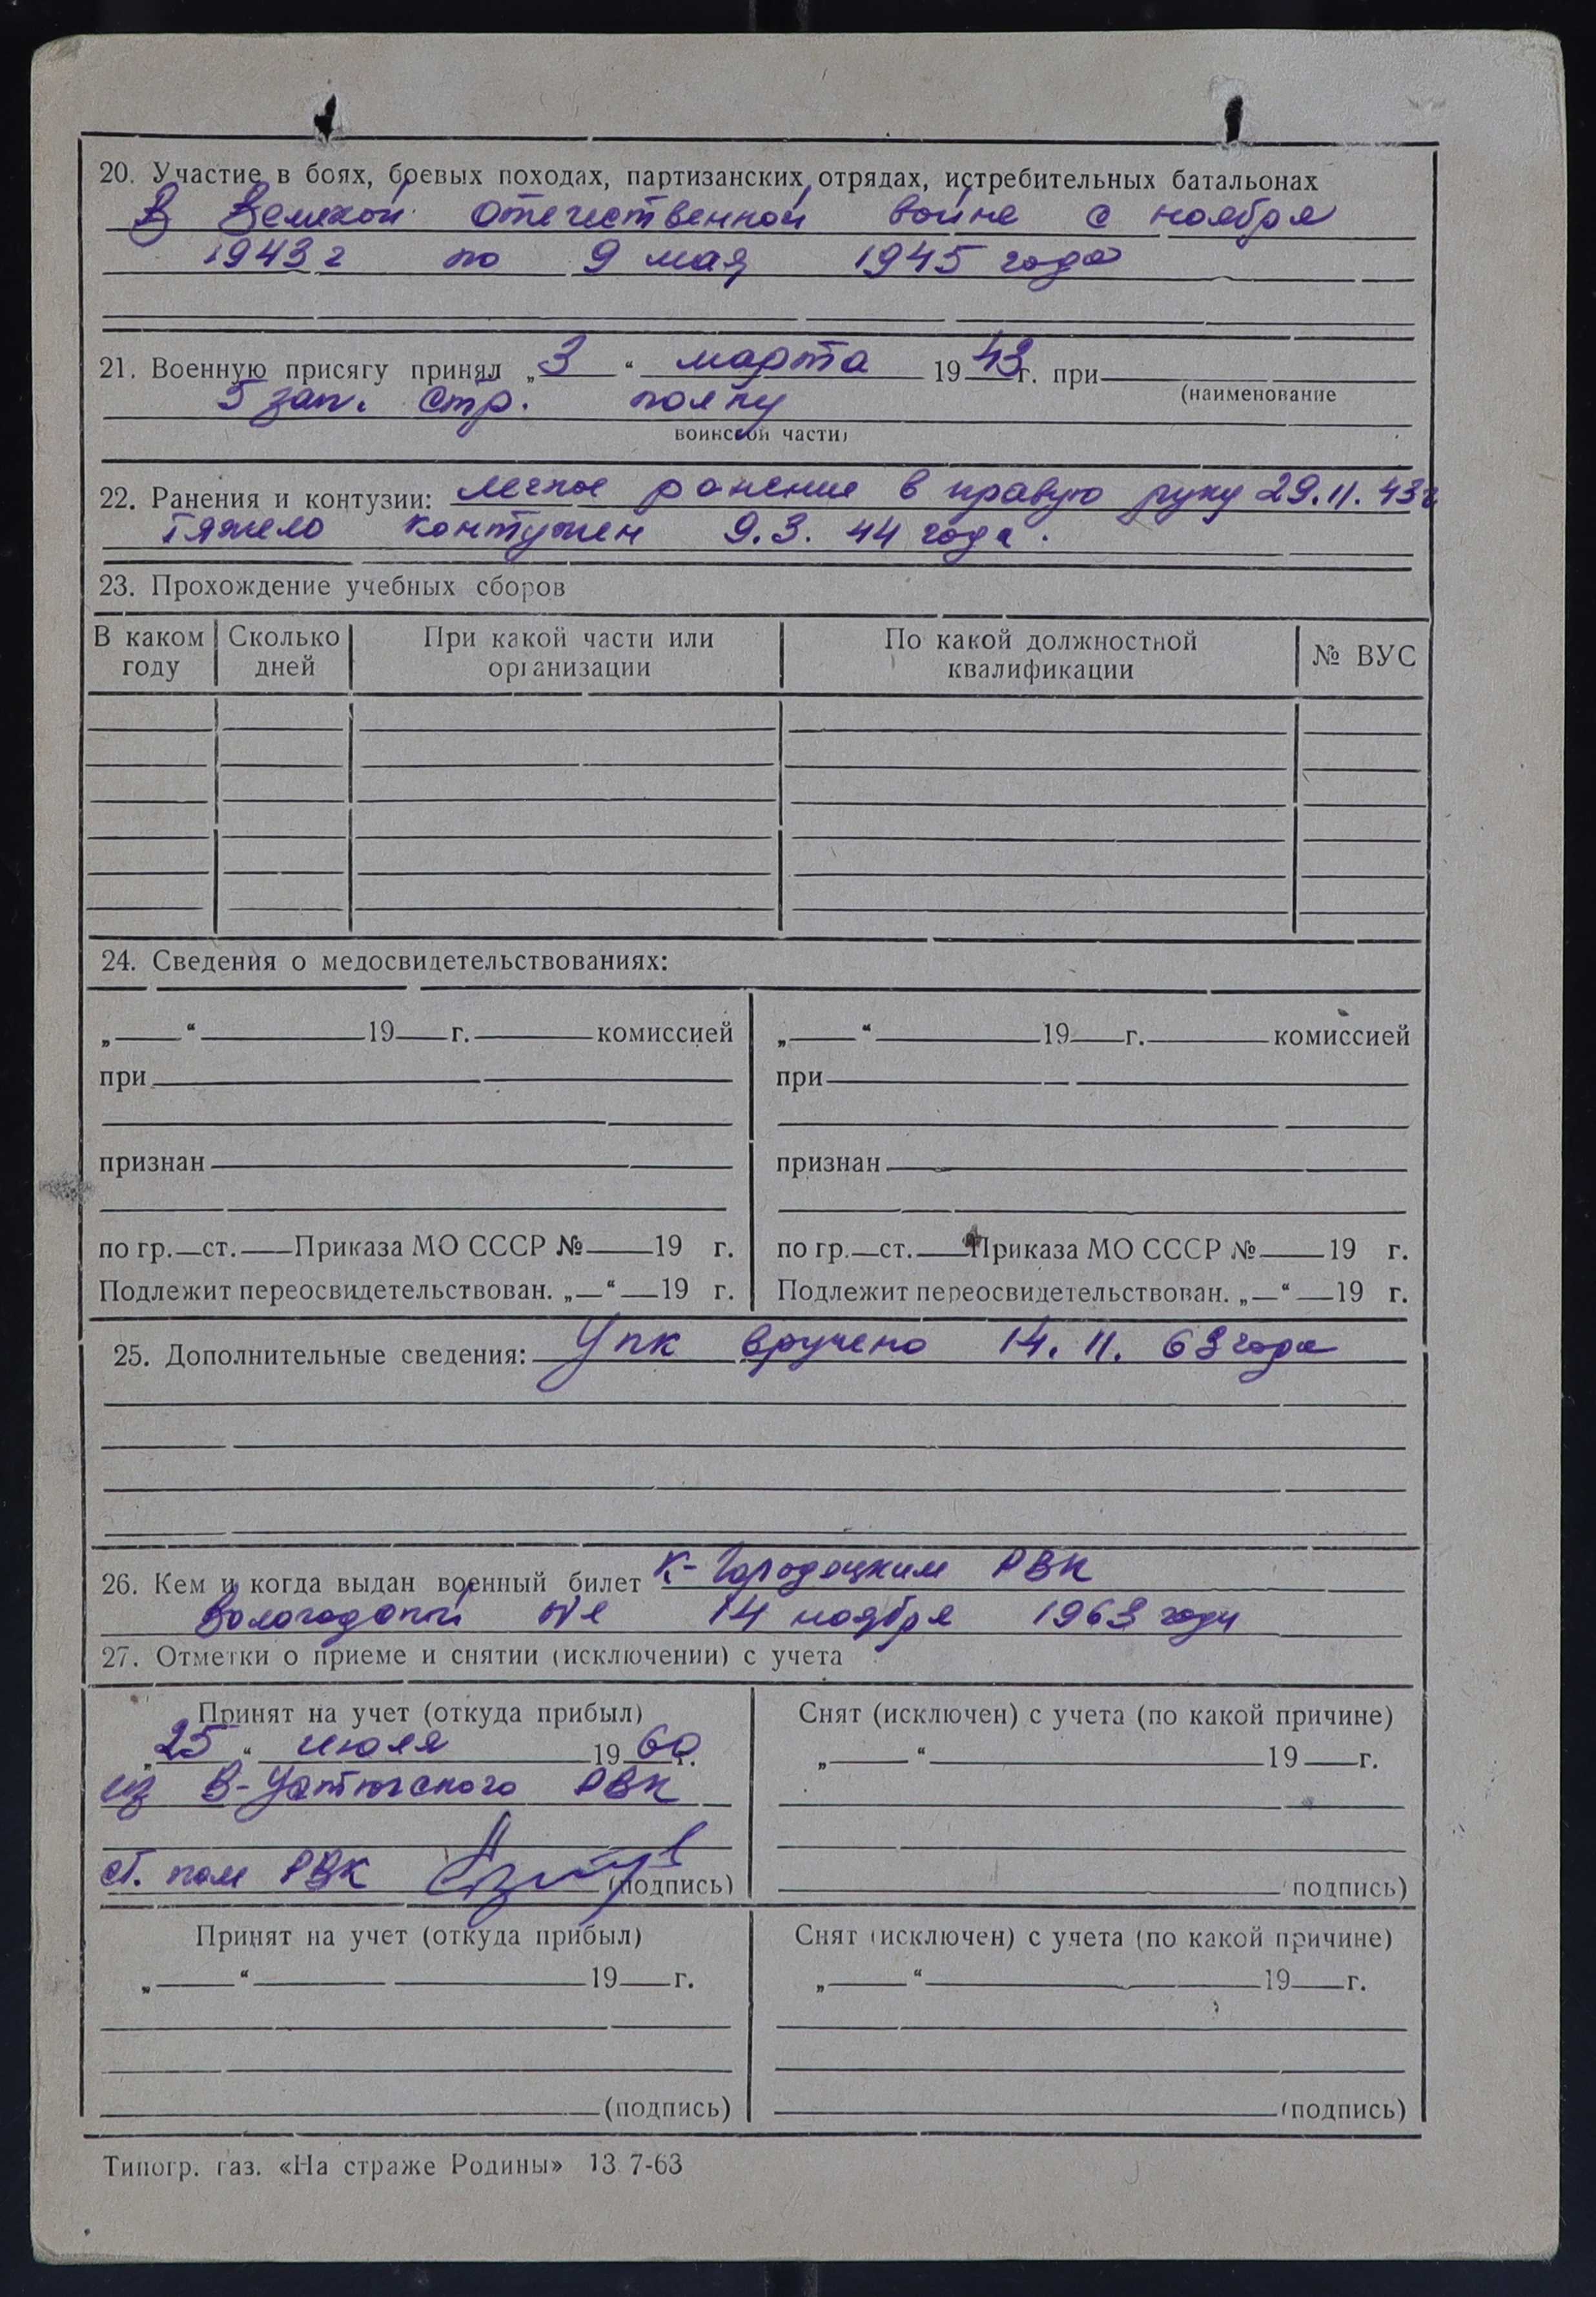 20. Участие в боях, боевых походах, партизанских отрядах, истребительных батальонах
В Великой отечественной войне с ноября
1943 г по 9 мая 1945 года
21. Военную присягу принял „3“ марта 1943 г. при
(наименование
5 зап. стр. полку
воинской части)
22. Ранения и контузии: легкое ранение в правую руку 29.11.43 г
тяжело контужен 9.3.44 года.
23. Прохождение учебных сборов
В каком году | Сколько дней | При какой части или организации | По какой должностной квалификации | № ВУС
24. Сведения о медосвидетельствованиях:
„ “ 19 г. комиссией
при
признан
по гр. ст. Приказа МО СССР № 19 г.
Подлежит переосвидетельствован. „ “ 19 г.
„ “ 19 г. комиссией
при
признан
по гр. ст. Приказа МО СССР № 19 г.
Подлежит переосвидетельствован. „ “ 19 г.
25. Дополнительные сведения: Упк вручено 14.11.63 года
26. Кем и когда выдан военный билет К-Городецким РВК
Вологодской обл 14 ноября 1963 года
27. Отметки о приеме и снятии (исключении) с учета
Принят на учет (откуда прибыл)
„25“ июля 1960 г.
из В-Устюгского РВК
ст. пом РВК (подпись)
Снят (исключен) с учета (по какой причине)
„ “ 19 г.
(подпись)
Принят на учет (откуда прибыл)
„ “ 19 г.
(подпись)
Снят (исключен) с учета (по какой причине)
„ “ 19 г.
(подпись)
Типогр. газ. «На страже Родины» 13 7-63